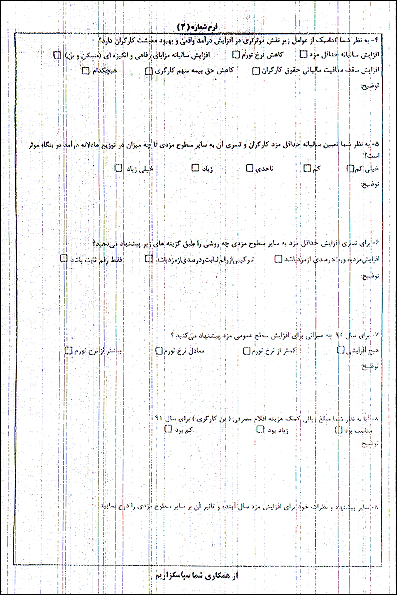 فرم شماره (۲)
۴- به نظر شما کدامیک از عوامل زیر نقش موثرتری در افزایش درآمد واقعی و بهبود معیشت کارگران دارد؟
افزایش سالیانه حداقل مزد □ کاهش نرخ تورم □ افزایش سالیانه مزایای رفاهی و انگیزه ای (مسکن و بن) □
افزایش سقف معافیت مالیاتی حقوق کارگران □ کاهش حق بیمه سهم کارگری □ هیچکدام □
توضیح:
۵- به نظر شما تعیین سالیانه حداقل مزد کارگران و تسری آن به سایر سطوح مزدی تا چه میزان در توزیع عادلانه درآمد در بنگاه موثر
است؟
خیلی کم □ کم □ تاحدی □ زیاد □ خیلی زیاد □
توضیح:
۶- برای تسری افزایش حداقل مزد به سایر سطوح مزدی چه روشی را طبق گزینه های زیر پیشنهاد می‌دهید؟
افزایش مزد بصورت درصدی از مزد باشد □ ترکیبی از رقم ثابت و درصدی از مزد باشد □ فقط رقم ثابت باشد □
توضیح:
۷- برای سال ۹۲ چه میزانی برای افزایش سطح عمومی مزد پیشنهاد می‌کنید؟
هیچ افزایشی □ کمتر از نرخ تورم □ معادل نرخ تورم □ بیشتر از نرخ تورم □
توضیح
۸- آیا به نظر شما مبلغ ریالی کمک هزینه اقلام مصرفی (بن کارگری) برای سال ۹۱
مناسب بود □ زیاد بود □ کم بود □
توضیح
سایر پیشنهاد و نظرات خود برای افزایش مزد سال آینده و تاثیر آن بر سایر سطوح مزدی را درج نمایید
از همکاری شما سپاسگزاریم